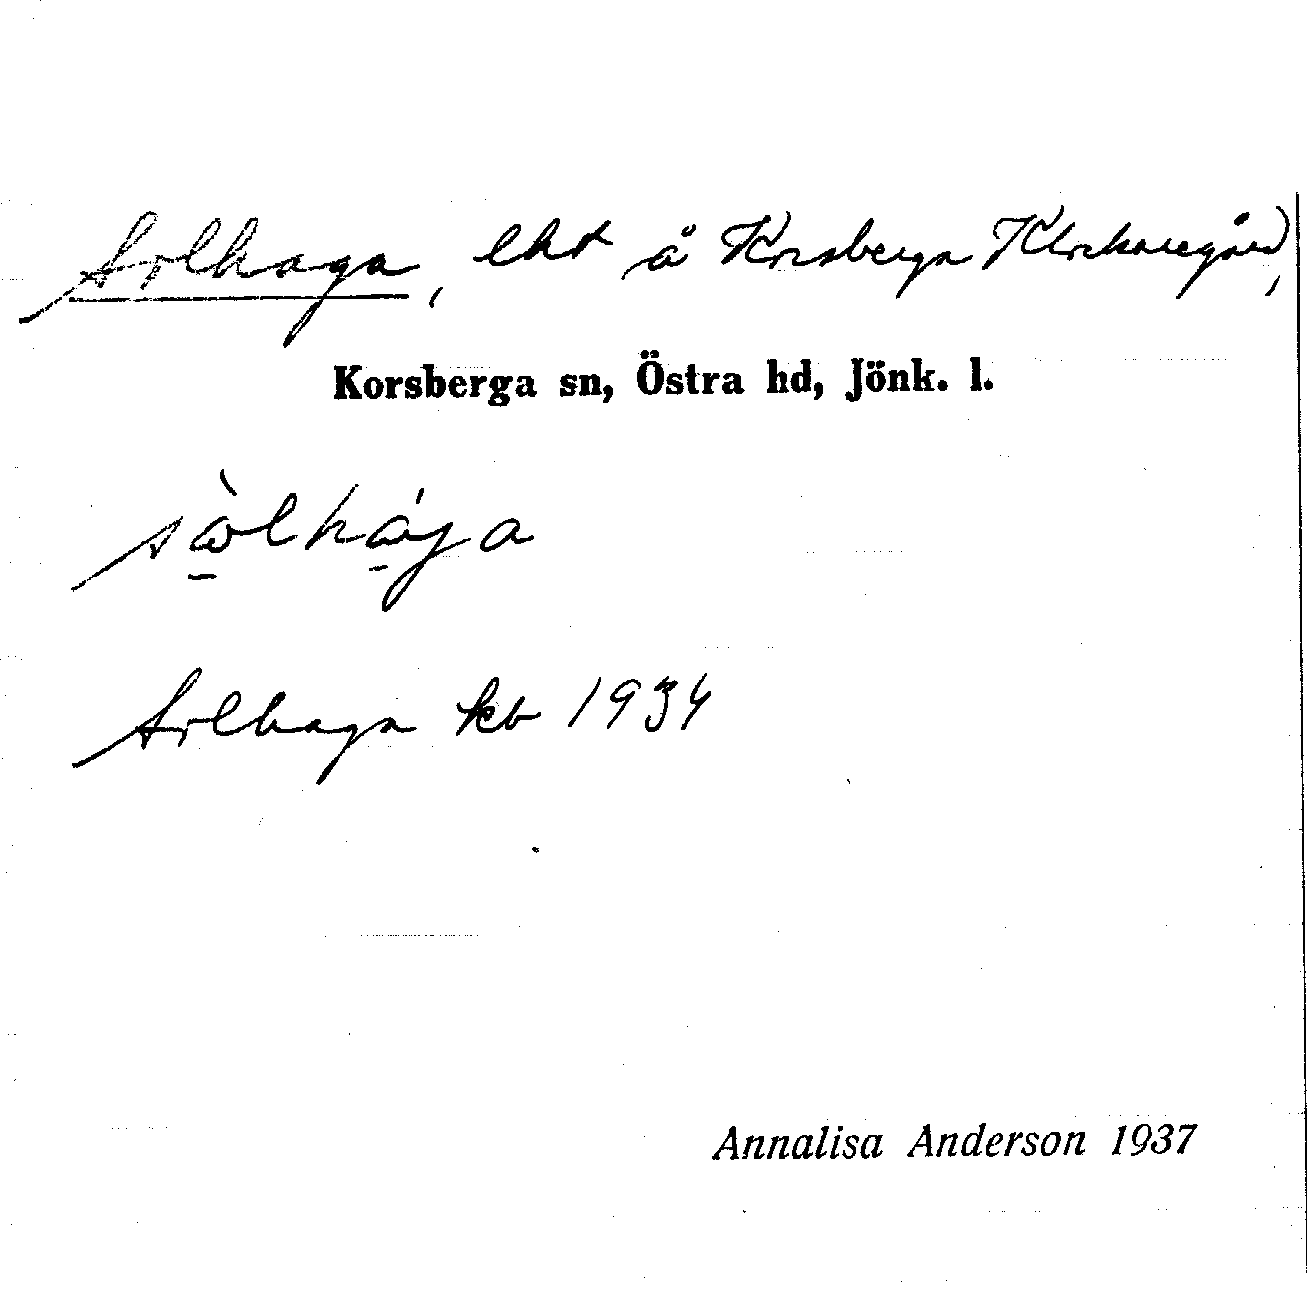 Solhaga, lht å Korsberga Klockaregård,
Korsberga sn, Östra hd, Jönk. l.
sò̠lhá̠ga
Solhaga kb 1934
Annalisa Anderson 1937